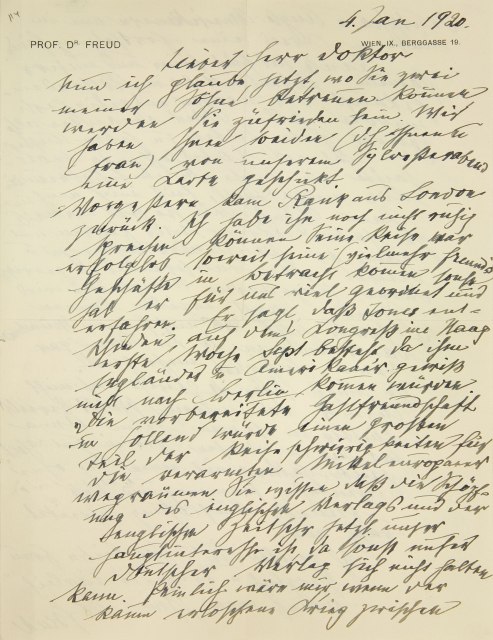 4. Jan 1920.
PROF. DR FREUD
WIEN, IX., BERGGASSE 19.
Lieber Herr Doktor
Nun ich glaube jetzt, wo Sie zwei
meiner Söhne betreuen können
werden Sie zufrieden sein. Wir
haben Ihnen beiden (d. h. Ihnen u
Frau) von unserem Sylvesterabend
eine Karte geschickt.
Vorgestern kam Rank aus London
zurück. Ich habe ihn noch nicht ruhig
sprechen können seine Reise war
erfolglos soweit seine
Geschäfte in Betracht kamen sonst
hat er für uns viel geordnet und
erfahren. Er sagt, daß Jones ent-
schieden auf dem Congreß im Haag
erste Woche Sept besteht, da
Engländer u Amerikaner gewiß
nicht nach Berlin kommen würden.
Die vorbereitete Gastfreundschaft
in Holland würde einen großen
Teil der Reiseschwierigkeiten für
die verarmten Mitteleuropäer
wegräumen. Sie wissen daß die Schöpf-
ung des englischen Verlags und der
englischen Zeitschr jetzt unser
Hauptinteresse ist, da sonst unser
deutscher Verlag sich nicht halten
kann. Peinlich wäre mir wenn der
kaum erloschene Krieg zwischen